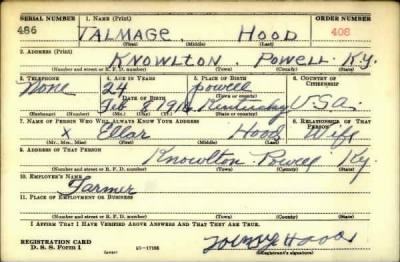 SERIAL NUMBER 1. NAME (Print) ORDER NUMBER
486 TALMAGE. HOOD 408
(First) (Middle) (Last)
2. ADDRESS (Print)
KNOWLTON. POWELL. KY.
(Number and street or R. F. D. number) (Town) (County) (State)
3. TELEPHONE 4. AGE IN YEARS 5. PLACE OF BIRTH 6. COUNTRY OF CITIZENSHIP
None 24 Powell
(Town or county)
Feb 8, Kentucky U.S.A.
(Exchange) (Number) (Mo.) (Day) (Yr.) (State or country)
7. NAME OF PERSON WHO WILL ALWAYS KNOW YOUR ADDRESS 8. RELATIONSHIP OF THAT PERSON
X Ellar Hood Wife
(Mr., Mrs., Miss) (First) (Middle) (Last)
9. ADDRESS OF THAT PERSON
Knowlton. Powell Ky.
(Number and street or R. F. D. number) (Town) (County) (State)
10. EMPLOYER'S NAME
Farmer
11. PLACE OF EMPLOYMENT OR BUSINESS
(Number and street or R. F. D. number) (Town) (County) (State)
I AFFIRM THAT I HAVE VERIFIED ABOVE ANSWERS AND THAT THEY ARE TRUE.
REGISTRATION CARD
D. S. S. Form 1 Hood
(Registrant's signature)